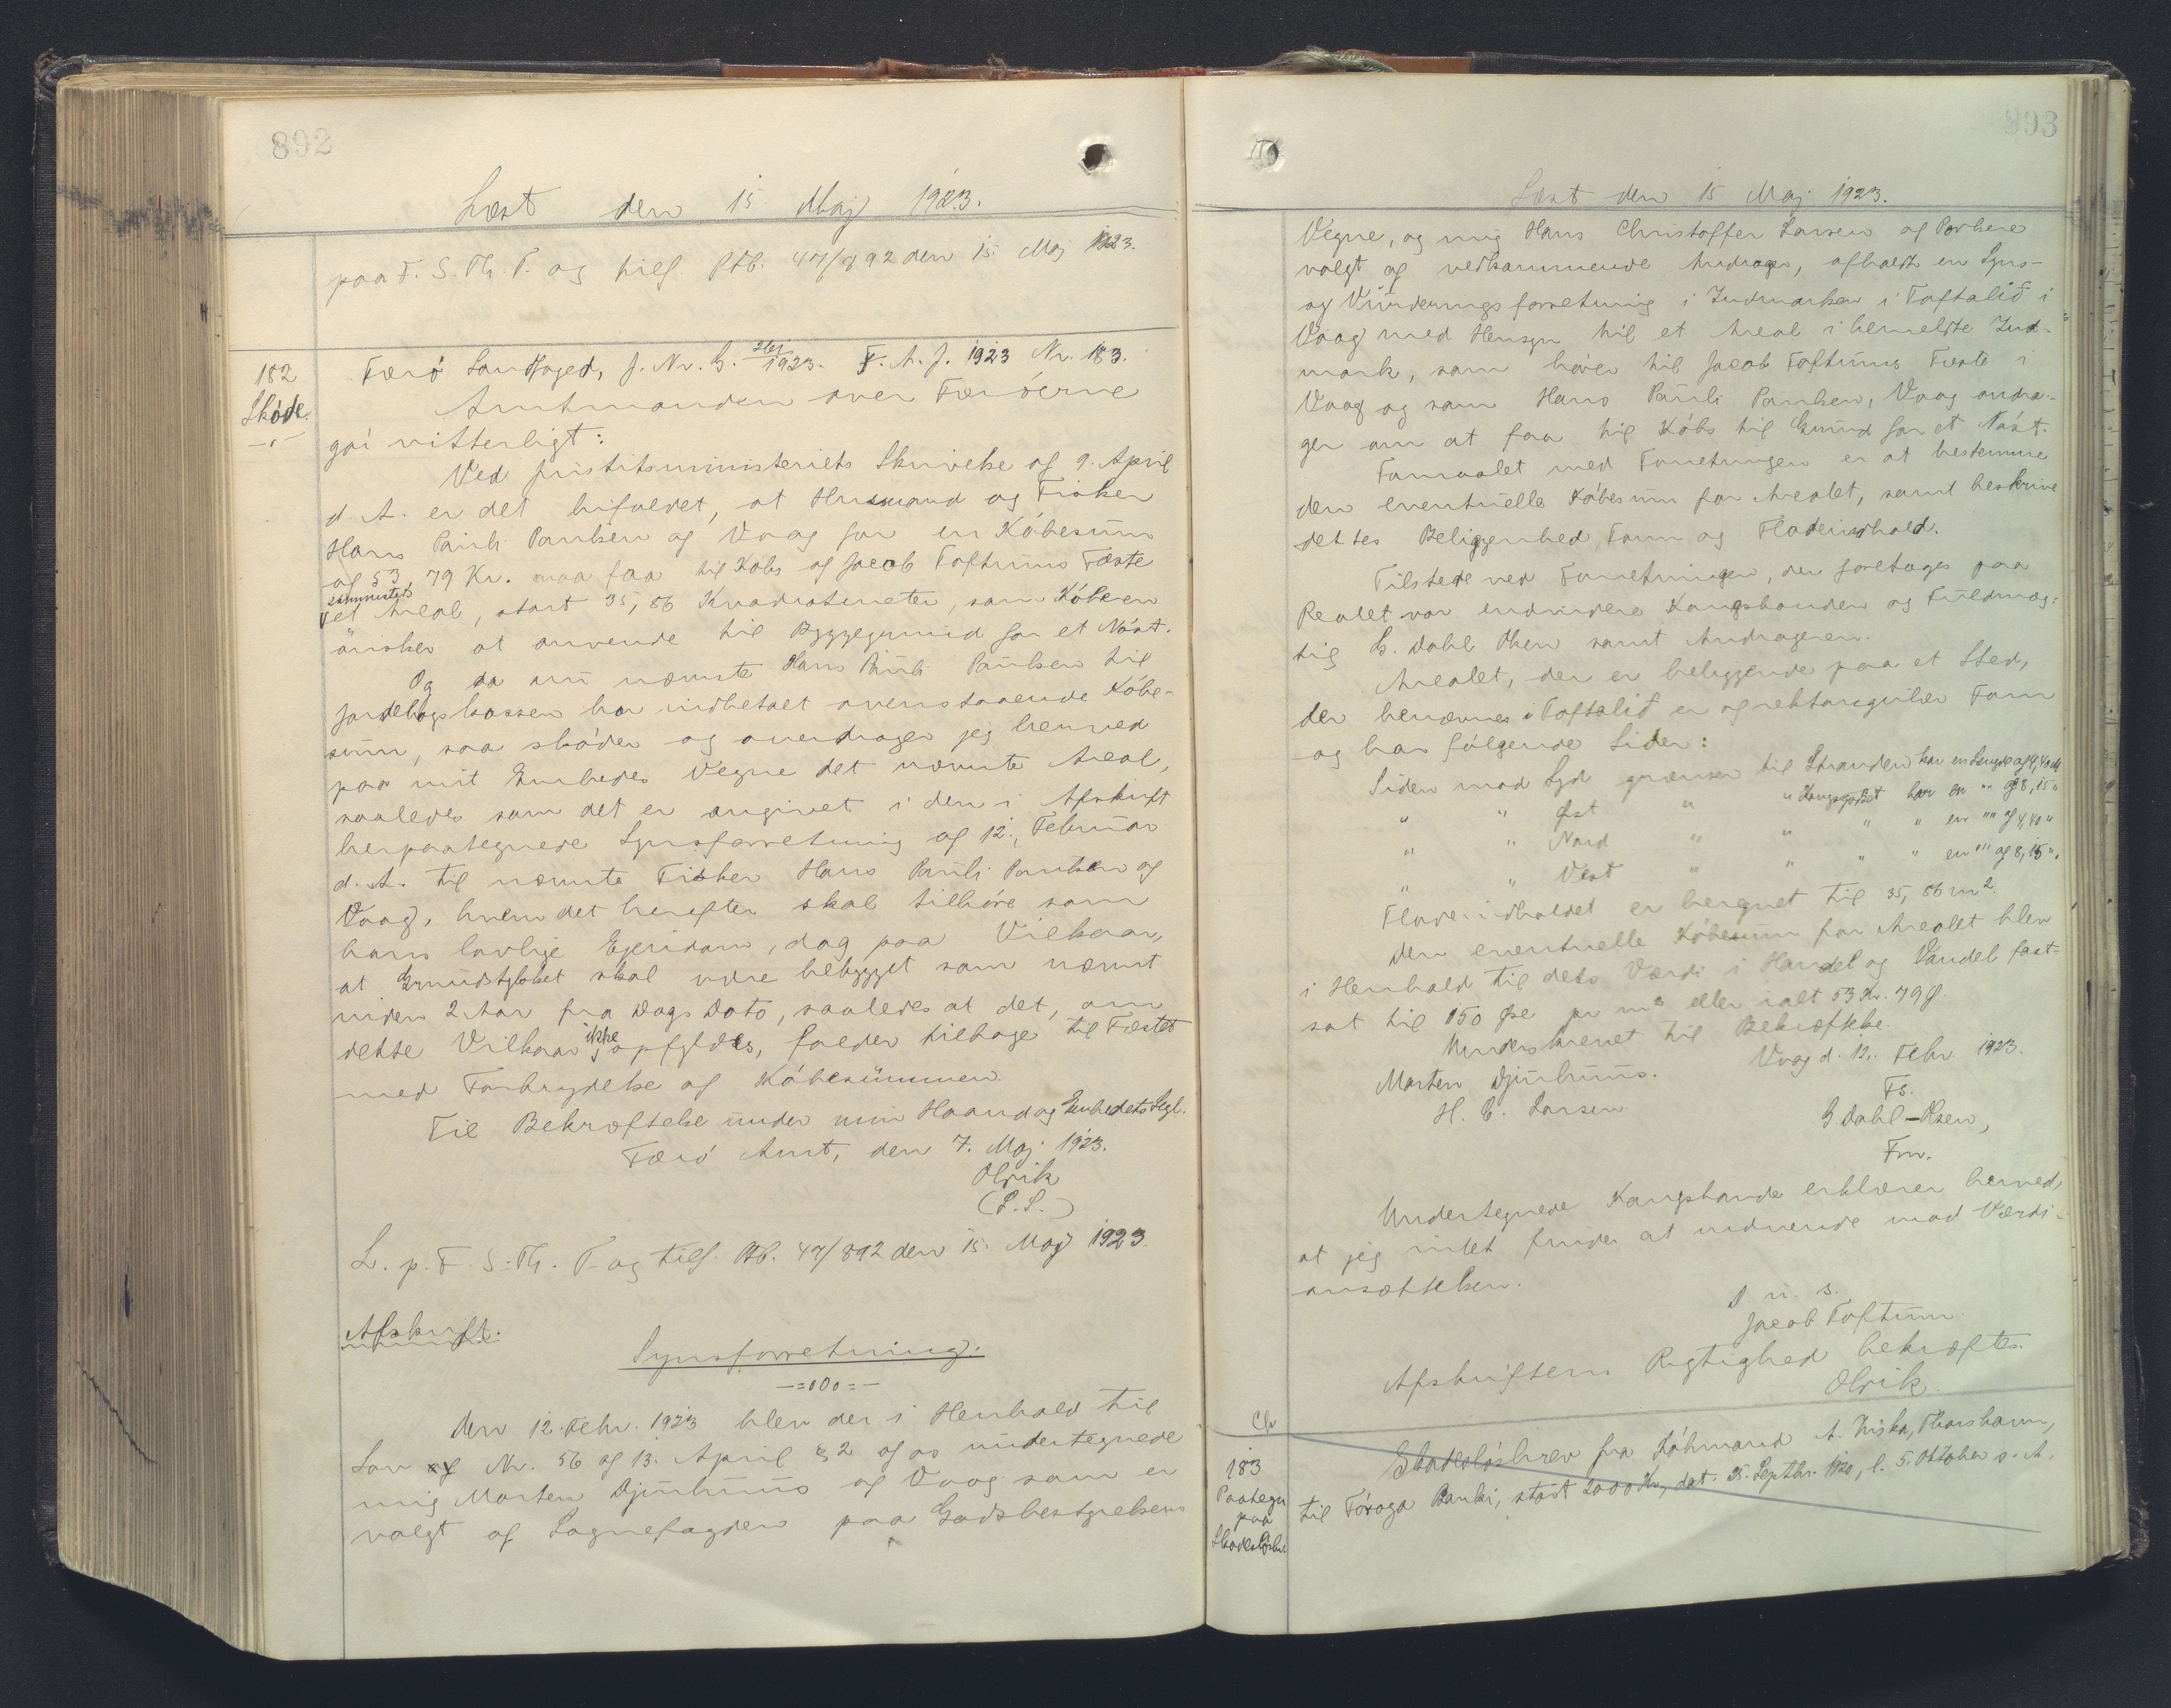 892
Læst den 15 Maj 1923.
paa F. S. Th. P. og tilf. Ptb. 47/892 den 15. Maj 1923.
182
Skøde
Færø Landfoged, J. Nr. B. 1923. F. A. J. 1923 Nr. 183.
Amtmanden over Færøerne
gør vitterligt:
Ved Justitsministeriets Skrivelse af 9. April
d. A. er det bifaldet, at Husmand og Fisker
Hans Pauli Paulsen af Vaag for en Købesum
af 53, 79 Kr. maa faa til Købs af Jacob Toftums Fæste
et Areal, stort 35,86 Kvadratmeter, som Køberen
ønsker at anvende til Byggegrund for et Nøst.
Og da nu nævnte Hans Pauli Paulsen til
Jordebogskassen har indbetalt ovenstaaende Købe-
sum, saa skøder og overdrager jeg herved
paa mit Embedes Vegne det nævnte Areal,
saaledes som det er angivet i den i Afskrift
herpaategnede Synsforretning af 12. Februar
d. A. til nævnte Fisker Hans Pauli Paulsen af
Vaag, hvem det herefter skal tilhøre som
hans lovlige Ejendom, dog paa Vilkaar,
at Grundstykket skal være bebygget som nævnt
inden 2 Aar fra Dags Dato, saaledes at det, om
dette Vilkaar ikke opfyldes, falder tilbage til Fæstet
med Fortrydelse af Købesummen.
Til Bekræftelse under min Haand og Embedets Segl.
Færø Amt, den 7. Maj 1923.
Olrik
(L.S.)
L. p. F. S. Th. P. og tilf. Ptb. 47/892 den 15. Maj 1923
Afskrift.
Synsforretning.
-=o0o=-
Den 12. Febr. 1923 blev der i Henhold til
Lov Nr. 56 af 13. April § 2 af os undertegnede
mig Morten Djurhuus af Vaag som er
valgt af Sognefogden paa Godsbestyrelsens
893
Læst den 15 Maj 1923.
Vegne, og mig Hans Christoffer Larsen af Porkere
valgt af vedkommende Andrager, afholdt en Syns-
og Vurderingsforretning i Indmarken i Toftalið i
Vaag med Hensyn til et Areal i bemeldte Ind-
mark, som hører til Jacob Toftums Fæste i
Vaag og som Hans Pauli Paulsen, Vaag andra-
ger om at faa til Købs til Grund for et Nøst.
Formaalet med Forretningen er at bestemme
den eventuelle Købesum for Arealet, samt beskrive
dettes Beliggenhed, Form og Fladeindhold.
Tilstede ved Forretningen, der foretages paa
Realet var endvidere Kongsbonden og Fuldmæg-
tig G. Dahl Olsen samt Andrageren.
Arealet, der er beliggende paa et Sted,
der benævnes i Toftalið er af rektangulær Form
og har følgende Sider:
Siden mod Syd grænser til Stranden har en Længde af 4,40 M
" " Øst " " Kongsgodset har en " af 8,15 "
" " Nord " " " " en " " af 4,40 "
" " Vest " " " " en " " af 8,15 ".
Fladeindholdet er beregnet til 35,86 m².
Den eventuelle Købesum for Arealet blev
i Henhold til dets Værdi i Handel og Vandel fast-
sat til 150 Øre pr m² eller ialt 53 Kr. 79 Ø.
Underskrevet til Bekræftelse.
Vaag d. 12. Febr. 1923.
Morten Djurhuus.
H. C. Larsen
Fs.
G. Dahl-Olsen,
Fm.
Undertegnede Kongsbonde erklærer herved,
at jeg intet finder at indvende mod Værdi-
ansættelsen.
D. u. s.
Jacob Toftum
Afskriftens Rigtighed bekræftes.
Olrik.
183
Paategn
paa
Skadesløsbr.
Skadesløsbrev fra Købmand A. Thorshavn,
til Føroya Banki, stort 2000 Kr., dat. 25. Septbr. 1920, l. 5. Oktober s. A.